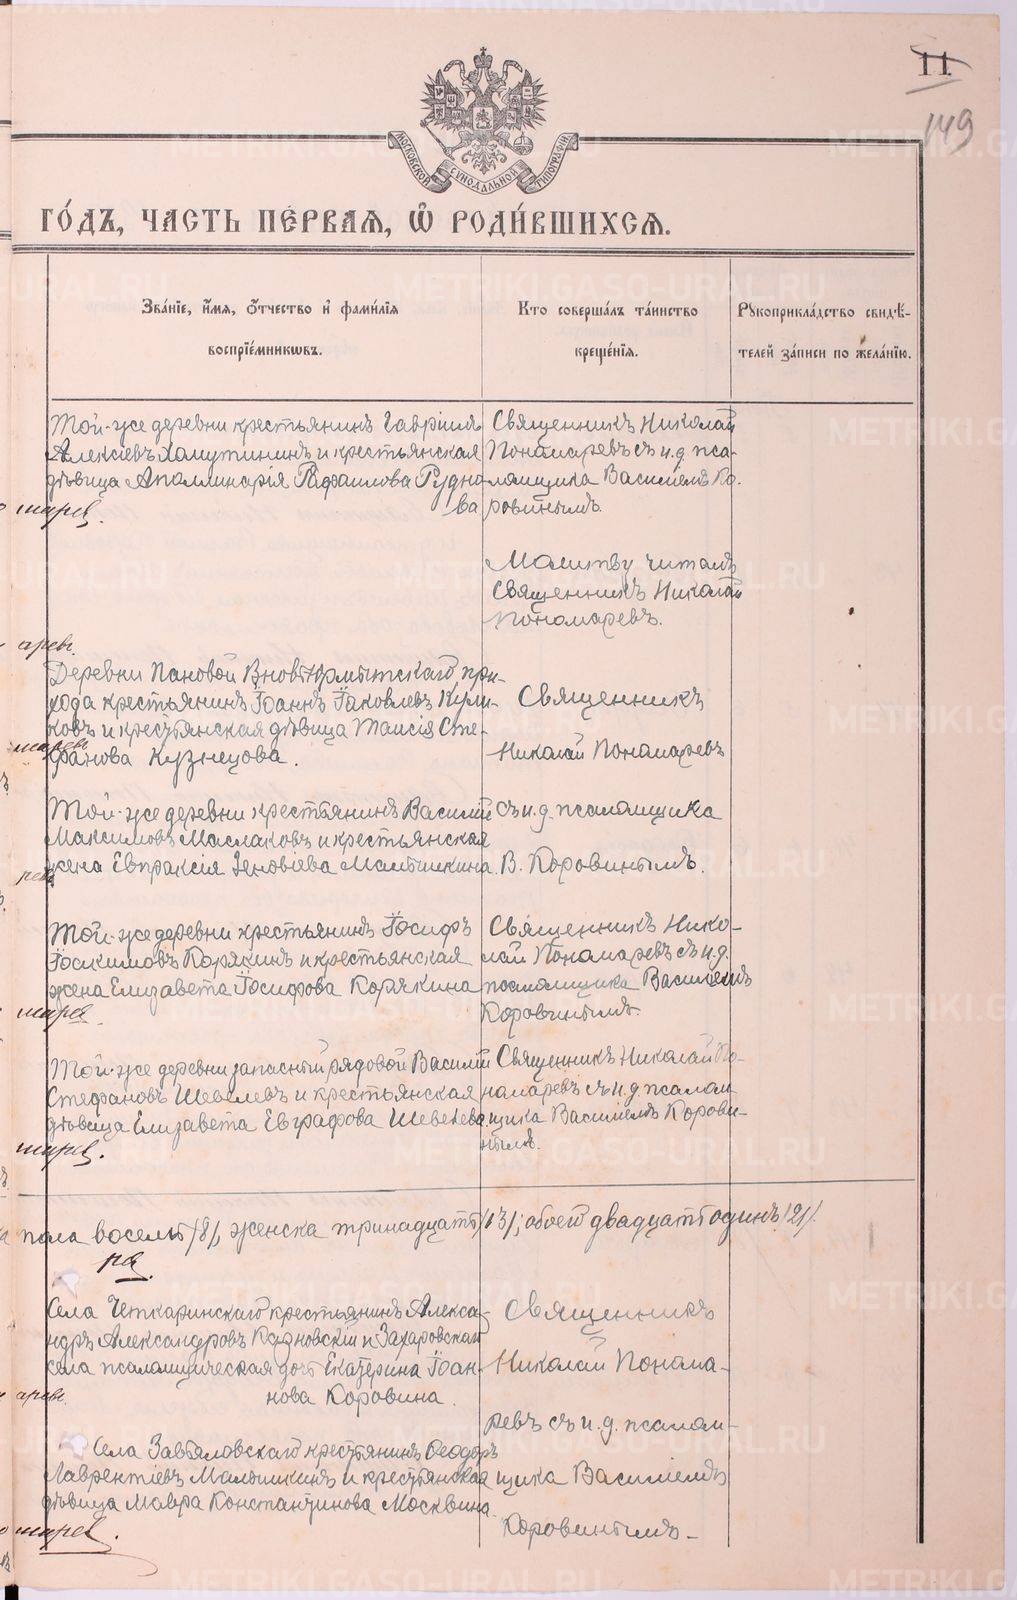 11
149
МОСКОВСКОЙ СѴНОДАЛЬНОЙ ТИПОГРАФІИ
ГО́ДЪ, ЧАСТЬ ПЕ́РВАѦ, Ѽ РОДИ́ВШИХСѦ.
Зва́ніе, и҆́мѧ, ѻ҆́тчество и҆ фами́лія
воспріе́мникѡвъ.
Кто соверша́лъ та́инство
креще́нія.
Рꙋкоприкла́дство свидѣ́-
телей за́писи по жела́нію.
Той-же деревни крестьянинъ Гавріилъ
Алексіевъ Хамутининъ и крестьянская
дѣвица Аполлинарія Рафаилова Рудно-
ва
Священникъ Николай
Пономаревъ съ и.д. пса-
ломщика Василіемъ Ко-
ровинымъ.
Молитву читалъ
Священникъ Николай
Пономаревъ.
Деревни Пановой Вновь-Юрмытскаго при-
хода крестьянинъ Іоаннъ Іаковлевъ Кули-
ковъ и крестьянская дѣвица Таисія Сте-
фанова Кузнецова.
Священникъ
Николай Пономаревъ
Той-же деревни крестьянинъ Василій
Максимовъ Маслаковъ и крестьянская
жена Евпраксія Зеновіева Малышкина
съ и.д. псаломщика
В. Коровинымъ.
Той-же деревни крестьянинъ Іосифъ
Іоакимовъ Корякинъ и крестьянская
жена Елизавета Іосифова Корякина
Священникъ Нико-
лай Пономаревъ съ и.д.
псаломщика Василіемъ
Коровинымъ.
Той-же деревни запасный рядовой Василій
Стефановъ Шевелевъ и крестьянская
дѣвица Елизавета Евграфова Шевелева.
Священникъ Николай По-
номаревъ съ и.д. псалом-
щика Василіемъ Корови-
нымъ.
пола восемь /8/, женска тринадцать /13/, обоего двадцать одинъ /21/.
Села Четкаринскаго крестьянинъ Алекса-
ндръ Александровъ Казновскій и Захаровскаго
села псаломщическая дочь Екатерина Іоан-
нова Коровина.
Священникъ
Николай Понома-
ревъ съ и.д. псалом-
щика Василіемъ
Коровинымъ
Села Завьяловскаго крестьянинъ Ѳеодоръ
Лаврентіевъ Малышкинъ и крестьянская
дѣвица Мавра Константинова Москвина.